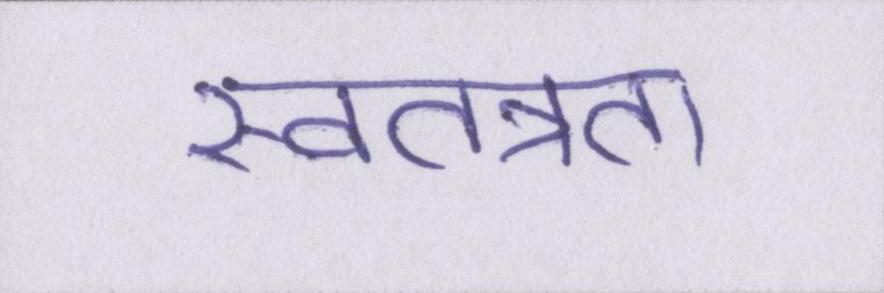 स्वतन्त्रता